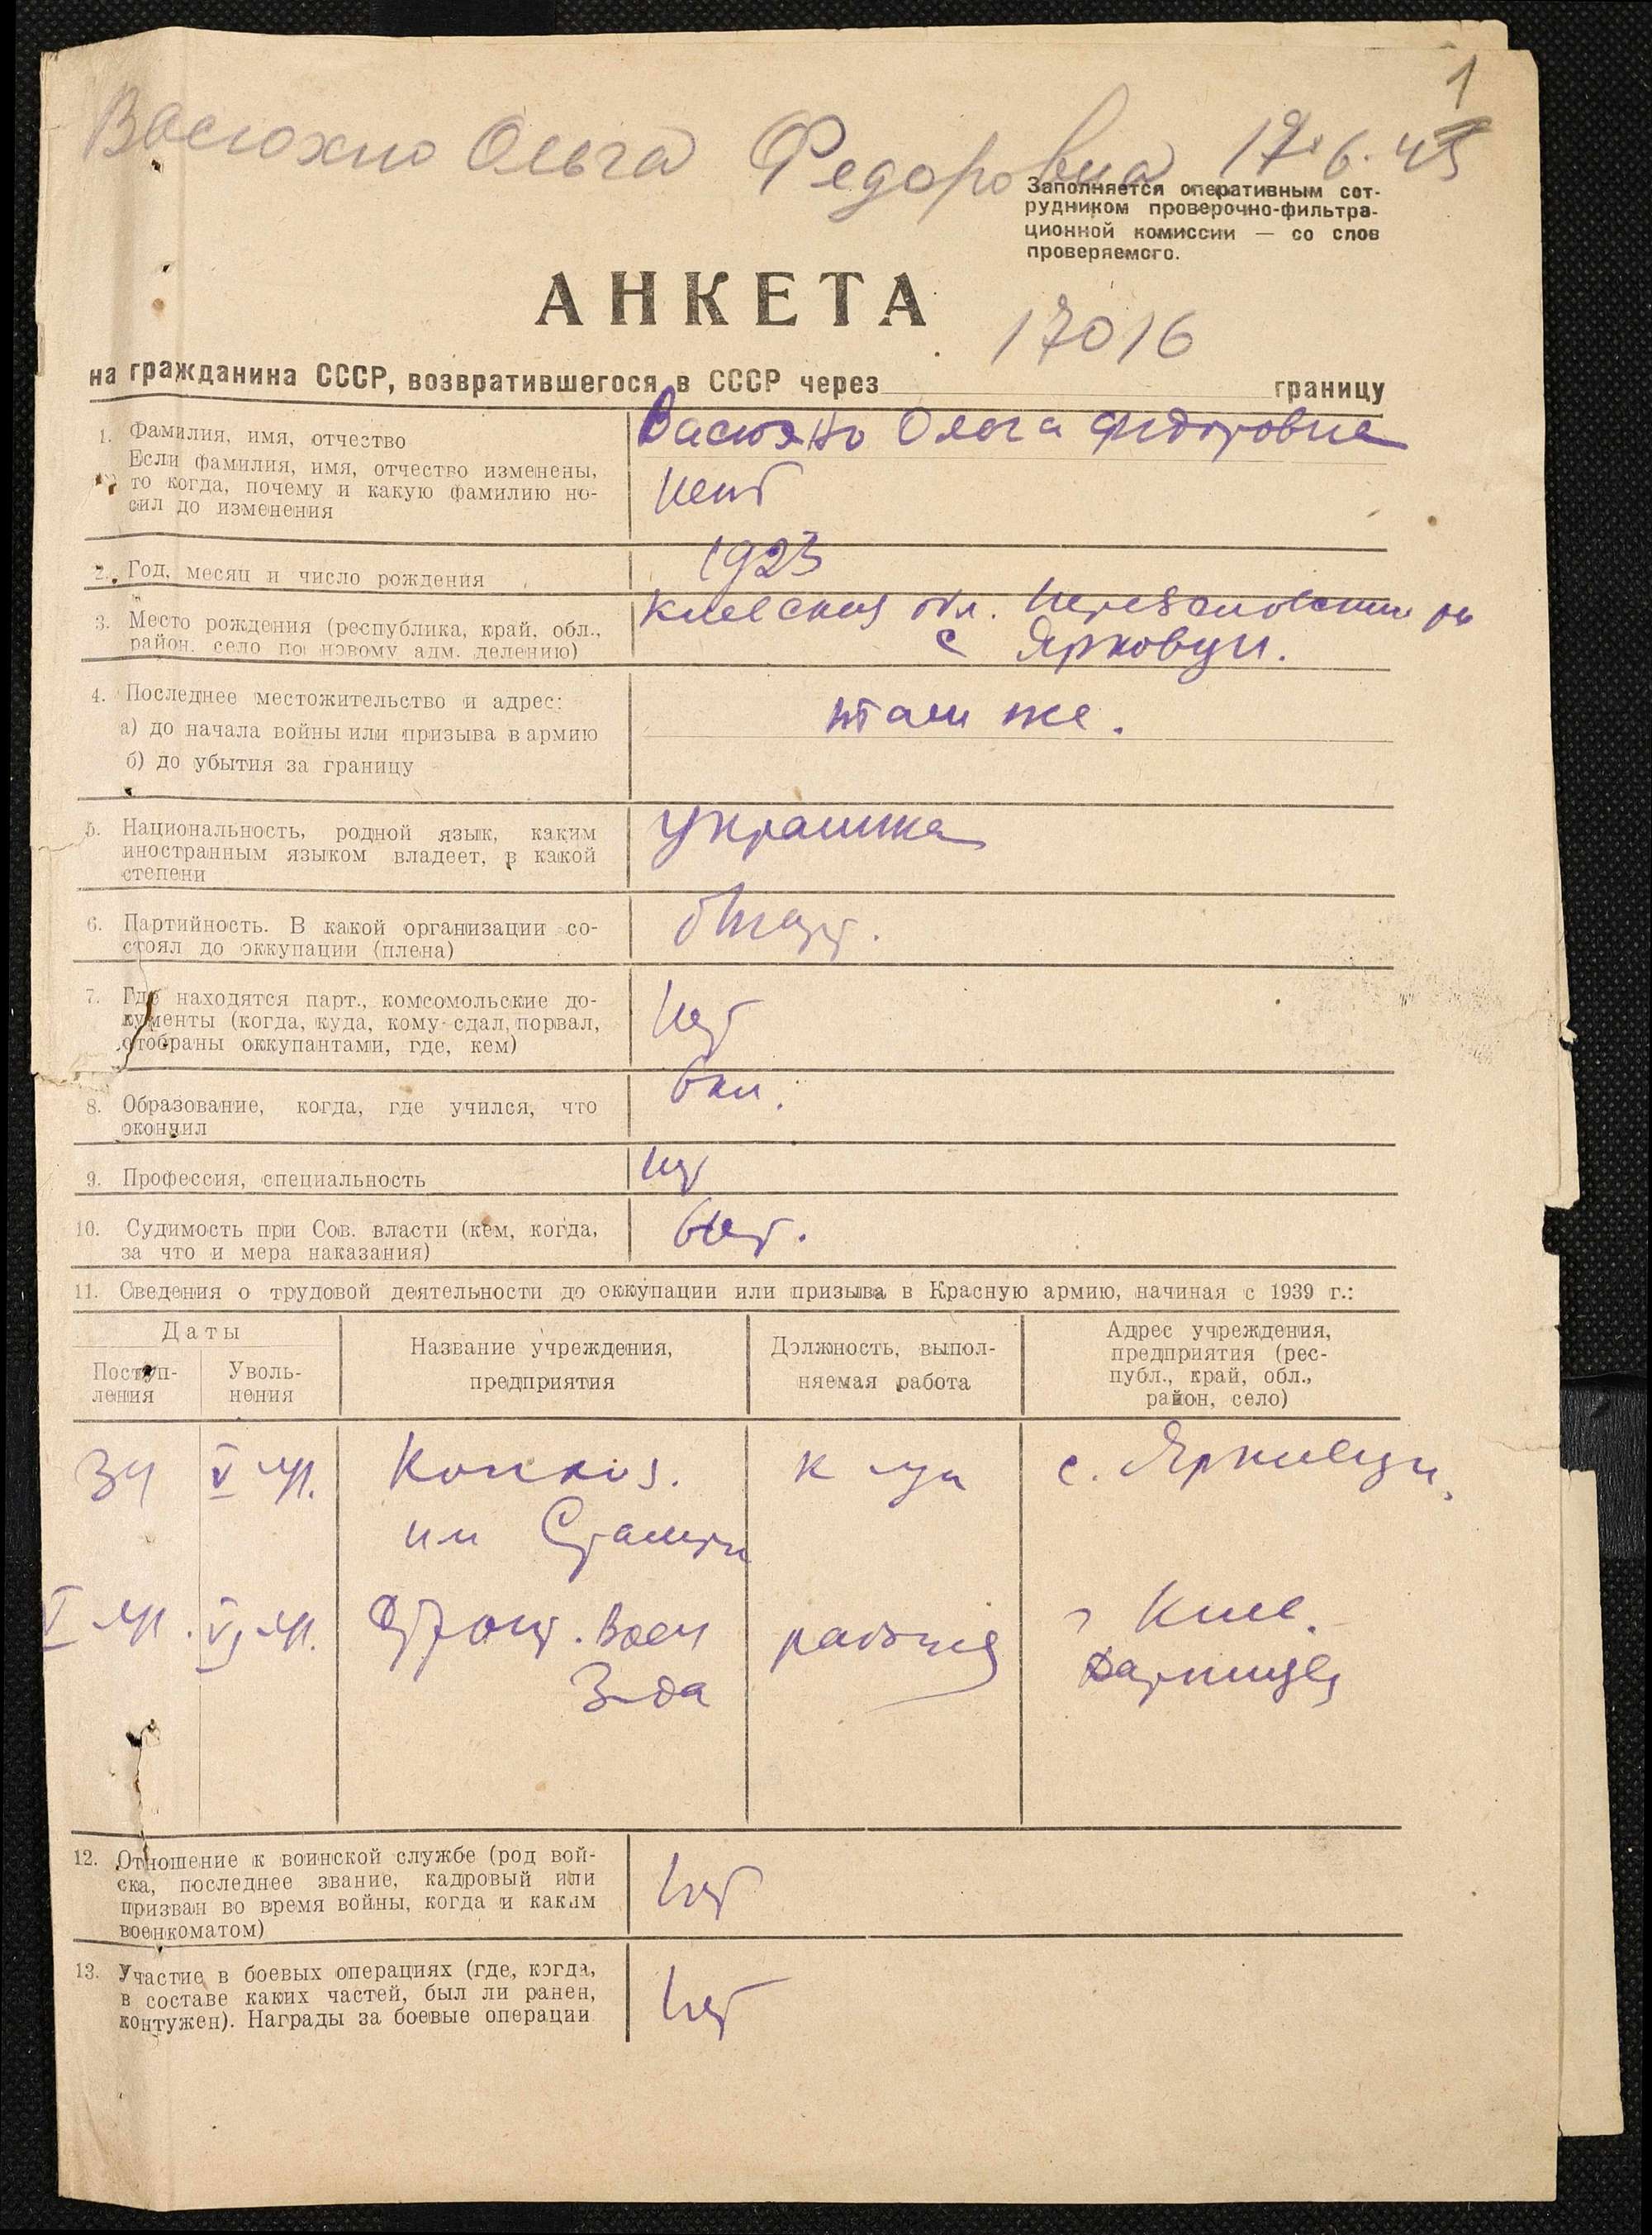 1
Васюхно Ольга Федоровна 17.6.45
Заполняется оперативным сот-
рудником проверочно-фильтра-
ционной комиссии — со слов
проверяемого.
АНКЕТА
17016
на гражданина СССР, возвратившегося в СССР через границу
1. Фамилия, имя, отчество
Если фамилия, имя, отчество изменены,
то когда, почему и какую фамилию но-
сил до изменения
Васюхно Ольга Фидоровна
нет
2. Год, месяц и число рождения
1923
3. Место рождения (республика, край, обл.,
район, село по новому адм. делению)
Киевская обл.
с Ярковци.
4. Последнее местожительство и адрес:
а) до начала войны или призыва в армию
б) до убытия за границу
там же.
5. Национальность, родной язык, каким
иностранным языком владеет, в какой
степени
украинка
6. Партийность. В какой организации со-
стоял до оккупации (плена)
7. Где находятся парт., комсомольские до-
кументы (когда, куда, кому сдал, порвал,
отобраны оккупантами, где, кем)
нет
8. Образование, когда, где учился, что
окончил
6 кл.
9. Профессия, специальность
нет
10. Судимость при Сов. власти (кем, когда,
за что и мера наказания)
11. Сведения о трудовой деятельности до оккупации или призыва в Красную армию, начиная с 1939 г.:
Даты
Поступ-
ления
Уволь-
нения
Название учреждения,
предприятия
Должность, выпол-
няемая работа
Адрес учреждения,
предприятия (рес-
публ., край, обл.,
район, село)
V 41. Колхоз. с.
им Сталина
V 41. VI 41. рабочая г Киев.
з-да Дарница
12. Отношение к воинской службе (род вой-
ска, последнее звание, кадровый или
призван во время войны, когда и каким
военкоматом)
нет
13. Участие в боевых операциях (где, когда,
в составе каких частей, был ли ранен,
контужен). Награды за боевые операции
нет